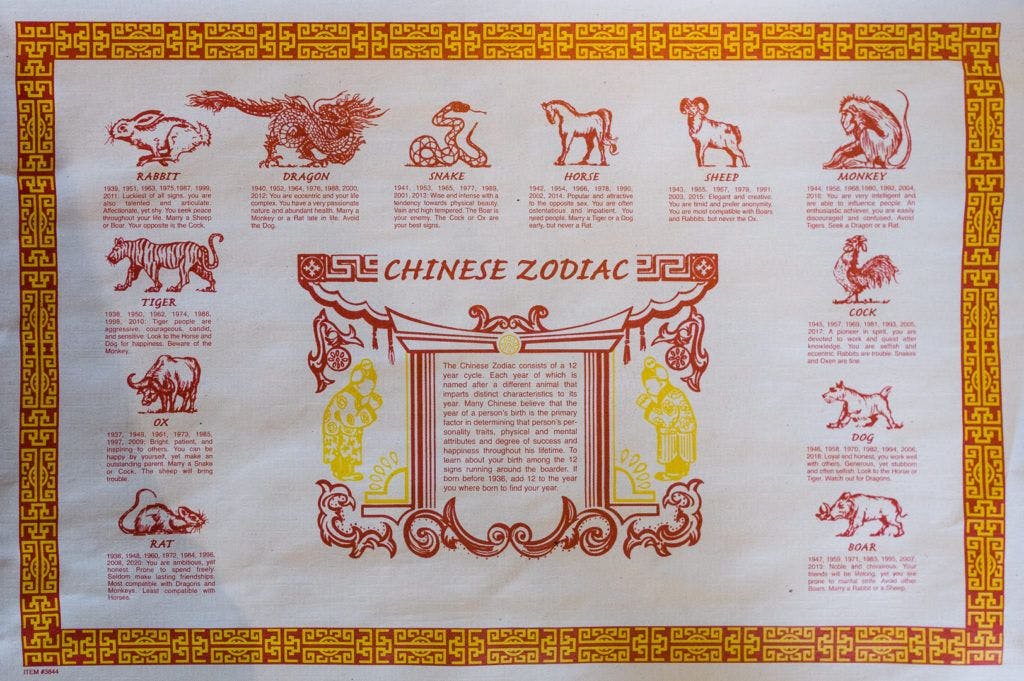 RABBIT
1939, 1951, 1963, 1975, 1987, 1999,
2011: Luckiest of all signs, you are
also talented and articulate.
Affectionate, yet shy. You seek peace
throughout your life. Marry a Sheep
or Boar. Your opposite is the Cock.
DRAGON
1940, 1952, 1964, 1976, 1988, 2000,
2012: You are eccentric and your life
complex. You have a very passionate
nature and abundant health. Marry a
Monkey or a Rat late in life. Avoid
the Dog.
SNAKE
1941, 1953, 1965, 1977, 1989,
2001, 2013: Wise and intense with a
tendency towards physical beauty.
Vain and high tempered. The Boar is
your enemy. The Cock or Ox are
your best signs.
HORSE
1942, 1954, 1966, 1978, 1990,
2002, 2014: Popular and attractive
to the opposite sex. You are often
ostentatious and impatient. You
need people. Marry a Tiger or a Dog
early, but never a Rat.
SHEEP
1943, 1955, 1967, 1979, 1991,
2003, 2015: Elegant and creative.
You are timid and prefer anonymity.
You are most compatible with Boars
and Rabbits, but never the Ox.
MONKEY
1944, 1956, 1968, 1980, 1992, 2004,
2016: You are very intelligent and
are able to influence people. An
enthusiastic achiever, you are easily
discouraged and confused. Avoid
Tigers. Seek a Dragon or a Rat.
TIGER
1938, 1950, 1962, 1974, 1986,
1998, 2010: Tiger people are
aggressive, courageous, candid,
and sensitive. Look to the Horse and
Dog for happiness. Beware of the
Monkey.
CHINESE ZODIAC
COCK
1945, 1957, 1969, 1981, 1993, 2005,
2017: A pioneer in spirit, you are
devoted to work and quest after
knowledge. You are selfish and
eccentric. Rabbits are trouble. Snakes
and Oxen are fine.
OX
1937, 1949, 1961, 1973, 1985,
1997, 2009: Bright, patient, and
inspiring to others. You can be
happy by yourself, yet make an
outstanding parent. Marry a Snake
or Cock. The sheep will bring
trouble.
The Chinese Zodiac consists of a 12
year cycle. Each year of which is
named after a different animal that
imparts distinct characteristics to its
year. Many Chinese believe that the
year of a person's birth is the primary
factor in determining that person's per-
sonality traits, physical and mental
attributes and degree of success and
happiness throughout his lifetime. To
learn about your birth among the 12
signs running around the boarder. If
born before 1936, add 12 to the year
you where born to find your year.
DOG
1946, 1958, 1970, 1982, 1994, 2006,
2018: Loyal and honest, you work well
with others. Generous, yet stubborn
and often selfish. Look to the Horse or
Tiger. Watch out for Dragons.
RAT
1936, 1948, 1960, 1972, 1984, 1996,
2008, 2020: You are ambitious, yet
honest. Prone to spend freely.
Seldom make lasting friendships.
Most compatible with Dragons and
Monkeys. Least compatible with
Horses.
BOAR
1947, 1959, 1971, 1983, 1995, 2007,
2019: Noble and chivalrous. Your
friends will be lifelong, yet you are
prone to marital strife. Avoid other
Boars. Marry a Rabbit or a Sheep.
ITEM #3844